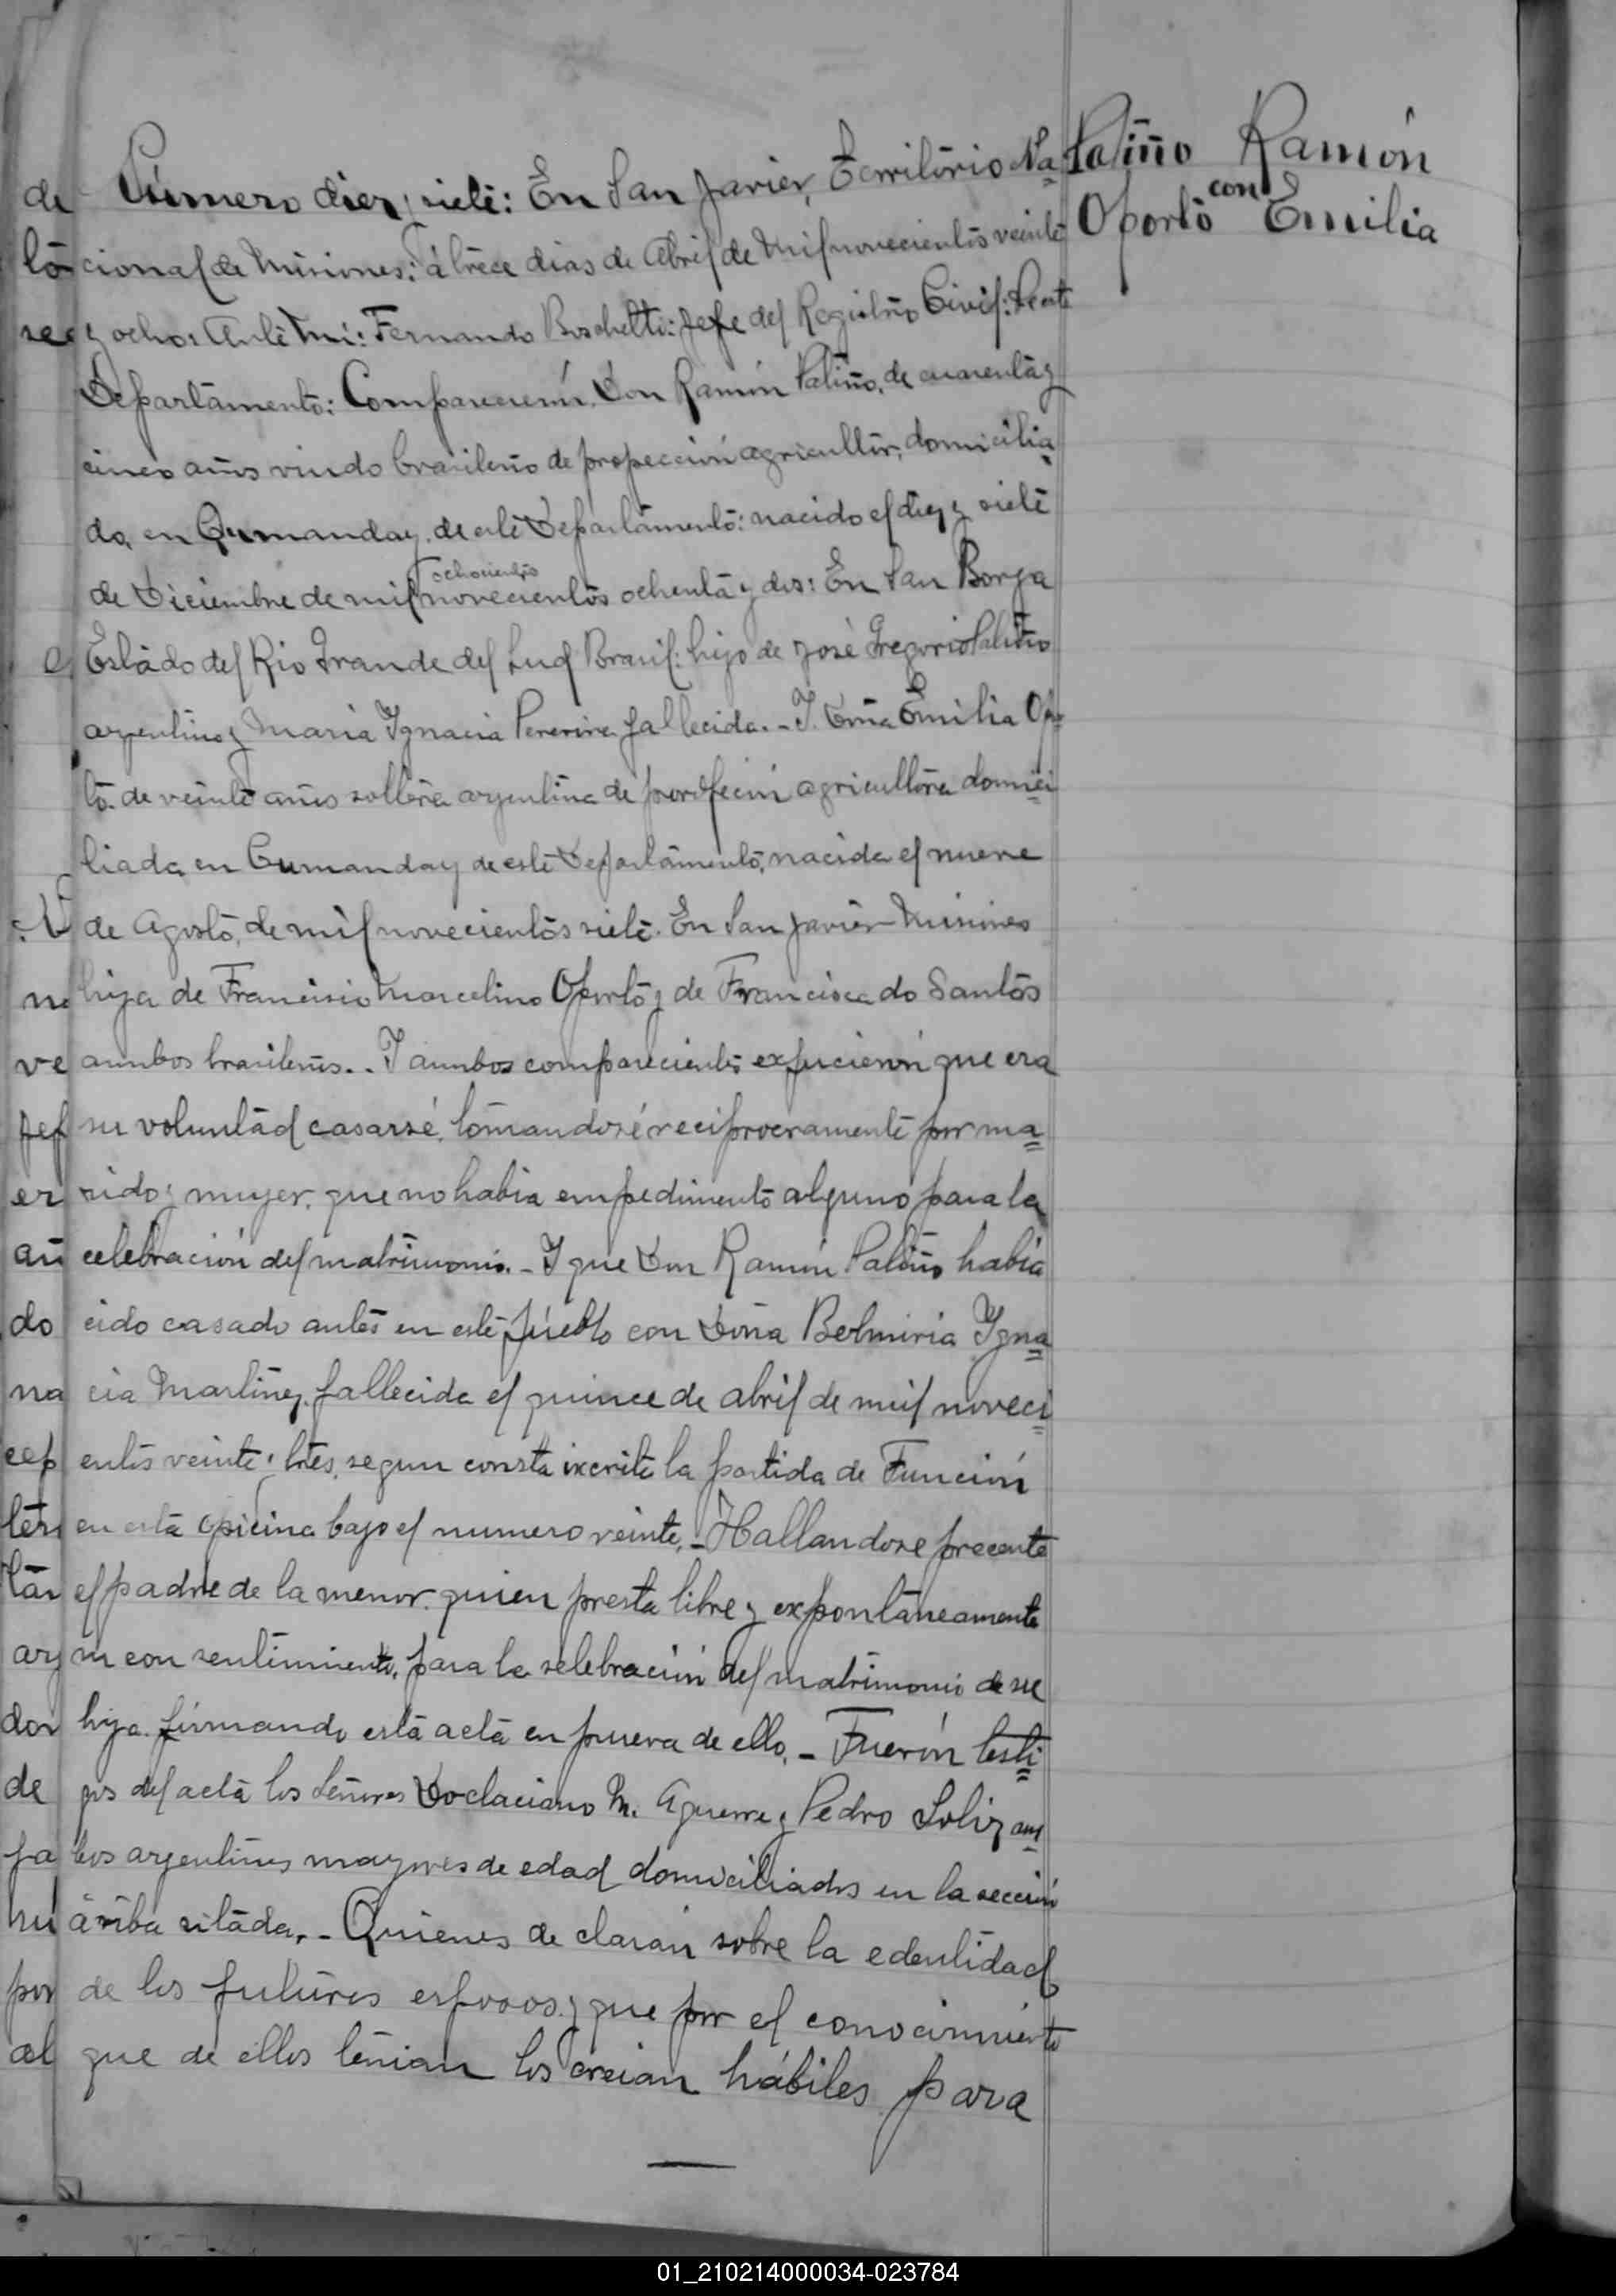 Patiño Ramón
con
Oporto Emilia
Número diez y siete: En San Javier, Territorio Na
cional de Misiones: á trece dias de Abril de Mil novecientos veinte
y ocho: Ante Mi: Fernando Boschetti: Jefe del Registro Civil: de este
Departamento: Comparecierón, Don Ramón Patiño, de cuarenta y
cinco años viudo brasileño de propección agricultór, domicilia
do, en Cumanday, de este Departamento: nacido el diez y siete
ochocientos
de Diciembre de mil novecientos ochenta y dos: En San Borja
Estado del Rio Grande del Sud Brasil: hijo de José Gregorio Patiño
argentino y Maria Ygnacia Pereira fallecida. - Y. Doña Emilia Opor
to de veinte años soltera argentina de profeción agricultora domici
liada, en Cumanday de este Departamento, nacida el nueve
de Agosto, de mil novecientos siete. En San Javier Misiones
hija de Francisco Marcelino Oporto y de Francisca do Santos
ambos brasileños. . Y ambos comparecientes expucierón que era
su voluntad casarsé, tomandosé reciprocramente por ma
rido y muyer, que no habia empedimento alguno para la
celebración del matrimonio. - Y que Don Ramón Patiño habia
cido casado antes en este pueblo con Doña Belmiria Ygna
cia Martinez, fallecida el quince de abril de mil noveci
entos veinte y tres, segun consta incrita la partida de Función
en esta opicina bajo el numero veinte, - Hallandose precente
el padre de la menor, quien presta libre y expontaneamente
su con sentimiento, para la selebración del matrimonio de su
hija. firmando esta acta en prueva de ello, - Fuerón testi
gos del acta los Señores Doclaciano M. Aguerre y Pedro Soliz am
bos argentinos mayores de edad domiciliados en la sección
arriba sitada, - Quienes de claran sobre la edentidad
de los futuros esposos, y que por el conocimiento
que de ellos tenian los creian hábiles para